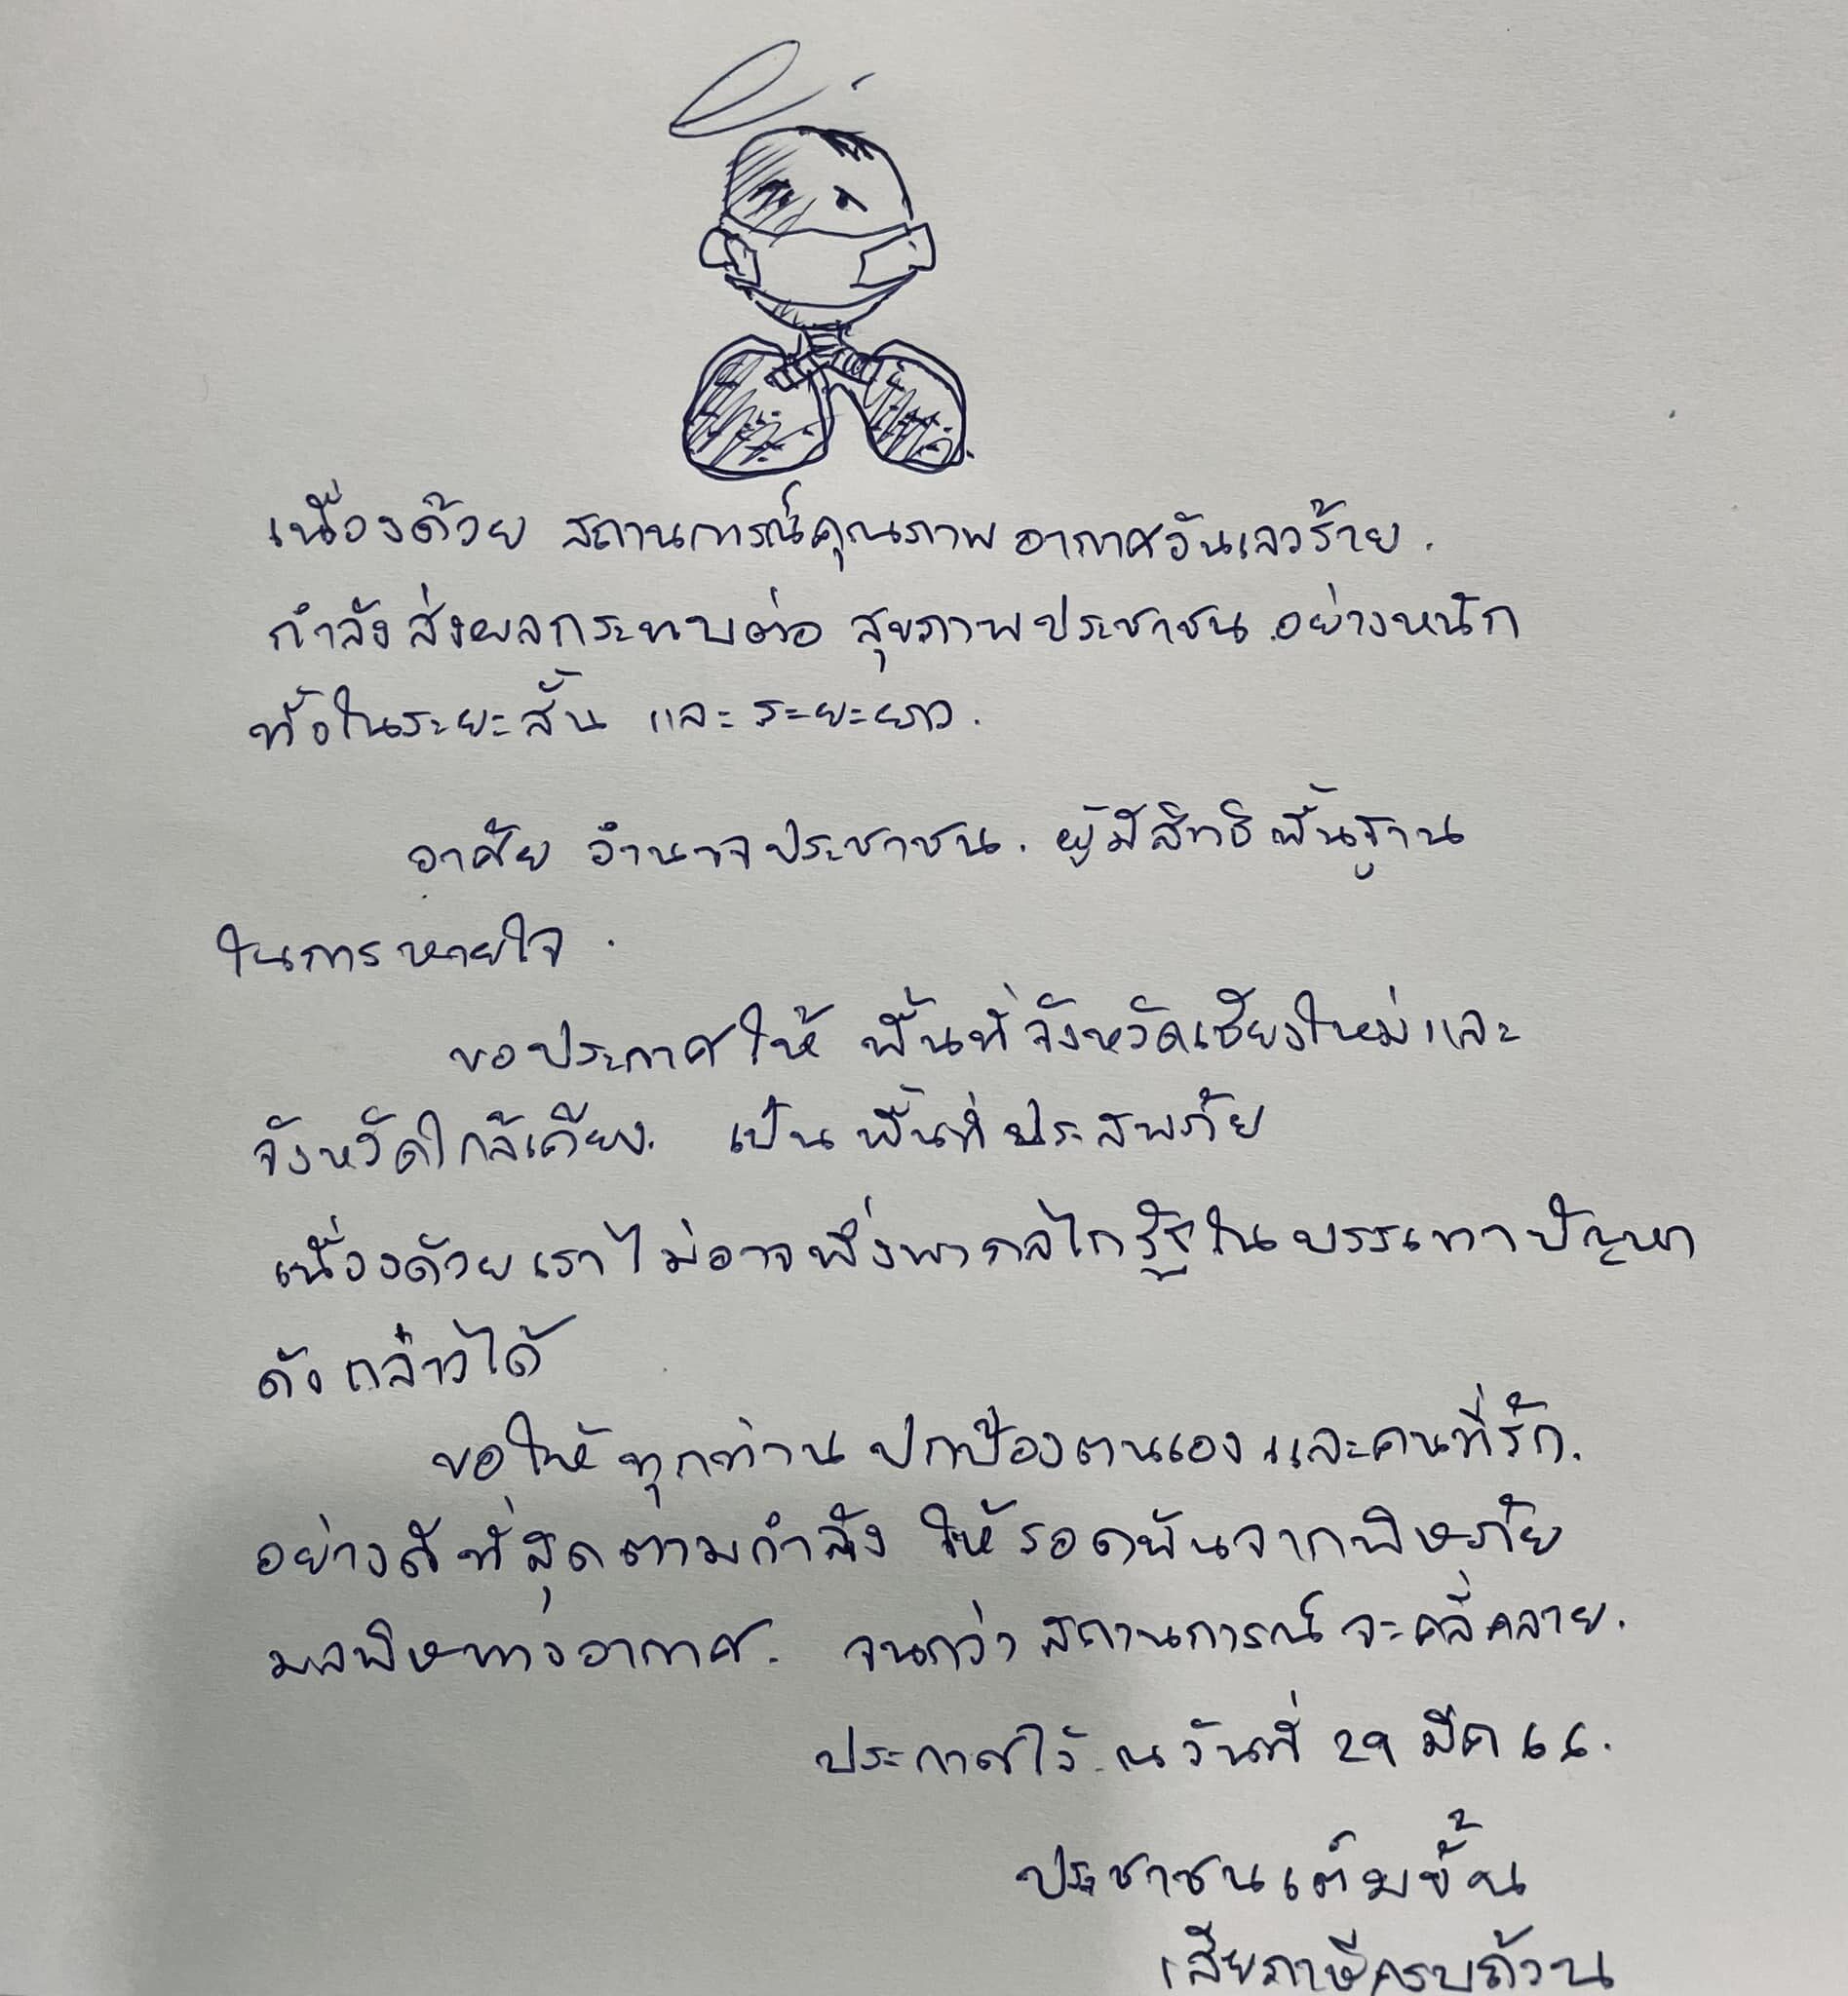 เนื่องด้วย สถานการณ์คุณภาพอากาศอันเลวร้าย.
กำลังส่งผลกระทบต่อ สุขภาพประชาชน อย่างหนัก
ทั้งในระยะสั้น และ ระยะยาว.
อาศัย อำนาจประชาชน. ผู้มีสิทธิพื้นฐาน
ในการหายใจ.
ขอประกาศให้ พื้นที่จังหวัดเชียงใหม่และ
จังหวัดใกล้เคียง. เป็น พื้นที่ประสพภัย
เนื่องด้วยเราไม่อาจพึ่งพากลไกรัฐในบรรเทาปัญหา
ดังกล่าวได้
ขอให้ ทุกท่าน ปกป้องตนเอง และคนที่รัก.
อย่างดีที่สุดตามกำลัง ให้รอดพ้นจากพิษภัย
มลพิษทางอากาศ. จนกว่า สถานการณ์จะคลี่คลาย.
ประกาศไว้ ณ วันที่ 29 มีค 66.
ประชาชนเต็มขั้น
เสียภาษีครบถ้วน